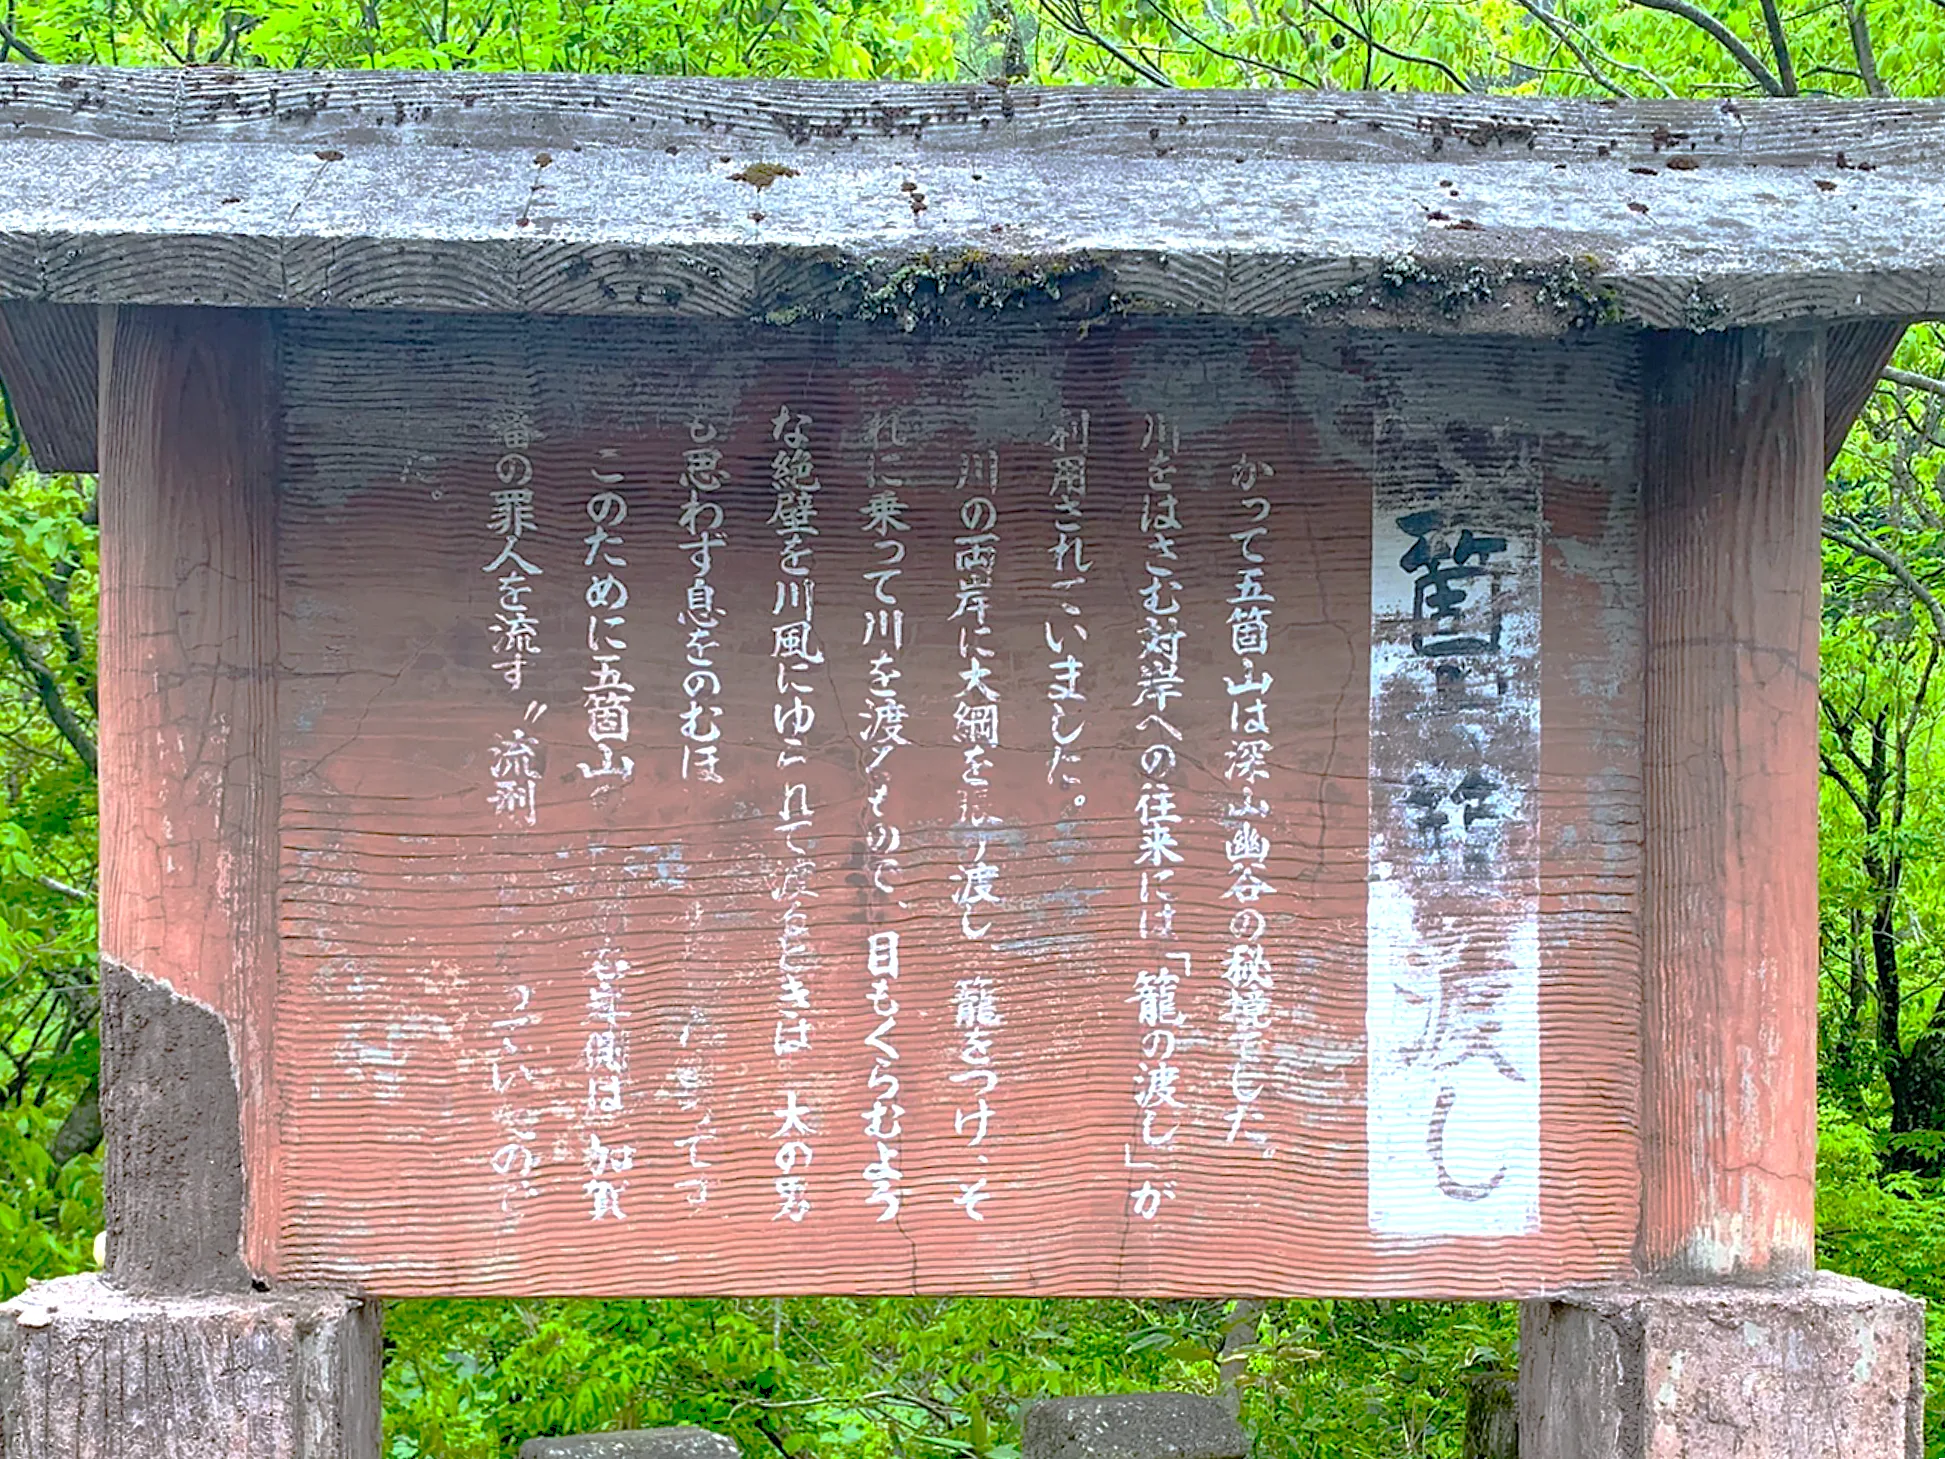 箇山の籠渡し
かって五箇山は深山幽谷の秘境でした。
川をはさむ対岸への往来には「籠の渡し」が
利用されていました。
川の両岸に大綱を張り渡し 籠をつけ、そ
れに乗って川を渡るもので、目もくらむよう
な絶壁を川風にゆられて渡るときは 大の男
も思わず息をのむほ
このために五箇山の 側は 加賀
藩の罪人を流す〝流刑 ていたので
た。